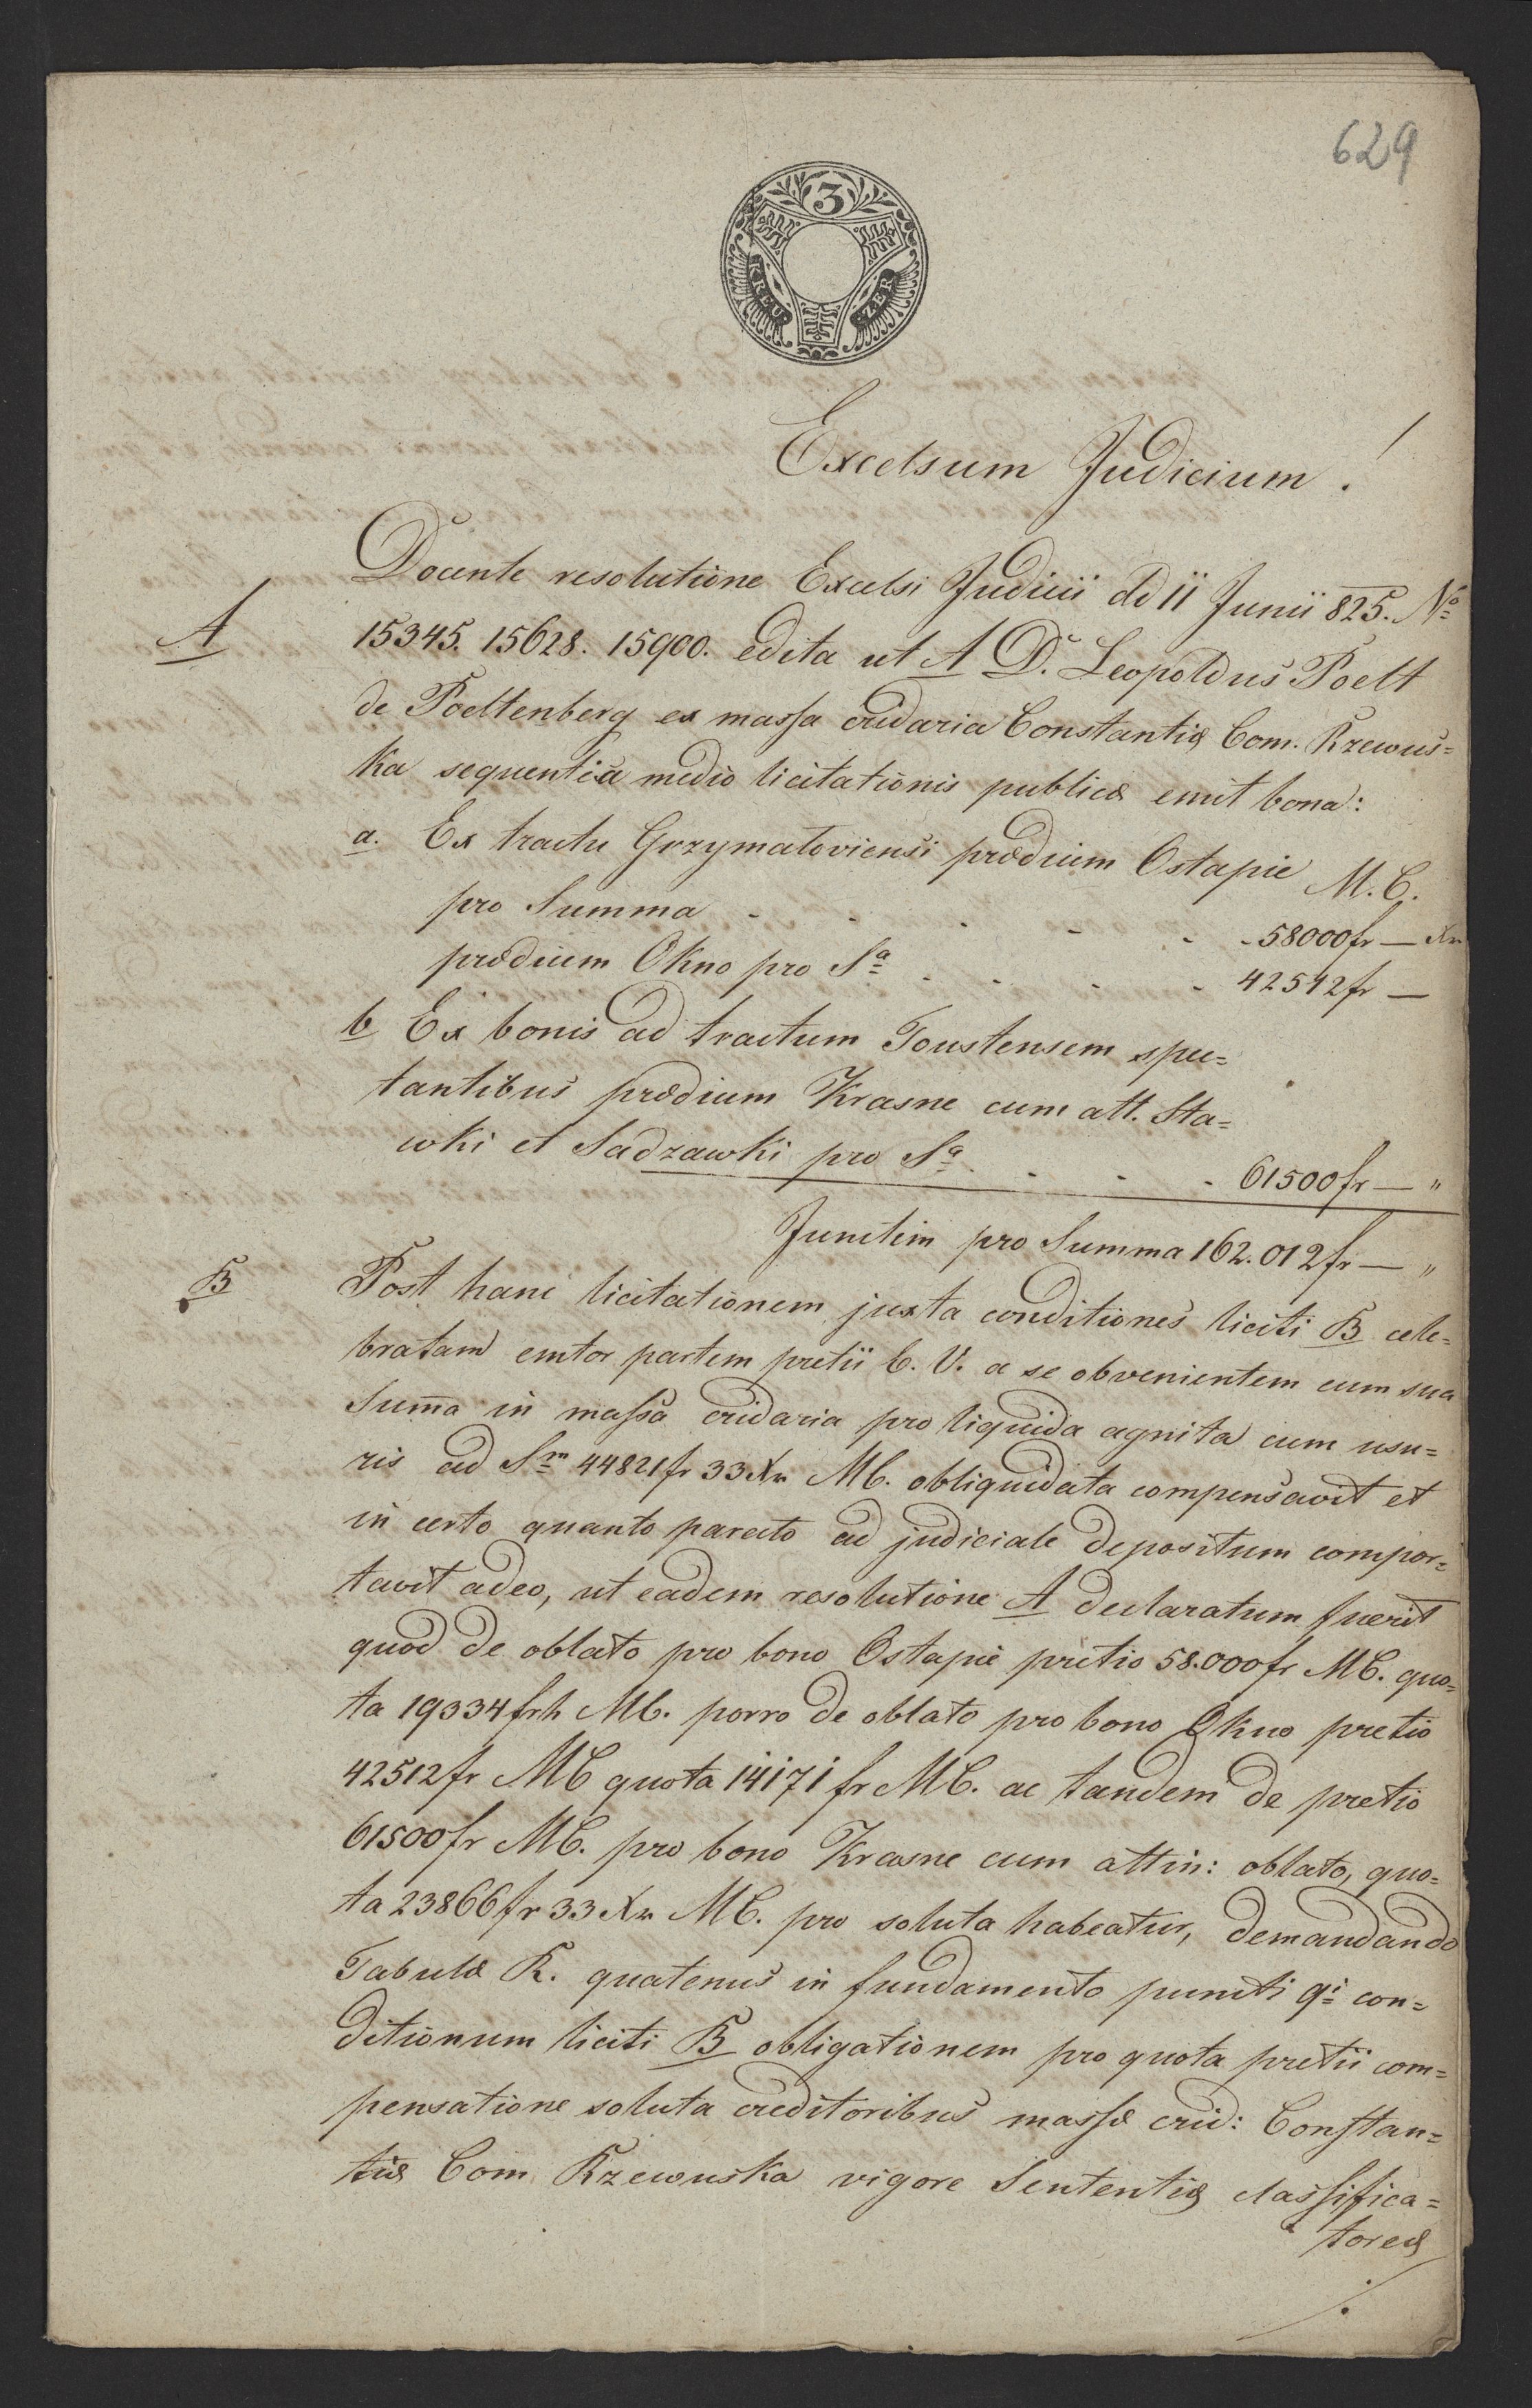 629
3
KREU ZER
Excelsum Judicium !
Docente resolutione Excelsi Judicii dd 11 Junii 825. No
A
15345. 15628. 15900. edita ut A D. Leopoldus Poelt
de Poeltenberg ex massa cridaria Constantiæ Com. Rzewus=
ka sequentia medio licitationis publicæ emit bona:
a. Ex tractu Grzymatoviensi prædium Ostapie M. C.
pro Summa - - - - - - 58000 fr — Xr
prædium Okno pro Sa - - - - 42512 fr —
b Ex bonis ad tractum Toustensem spec=
tantibus prædium Krasne cum att. Sta=
wki et Sadzawki pro Sa - - - 61500 fr — "
Junctim pro Summa 162.012 fr — "
B
Post hanc licitationem juxta conditiones liciti B cele=
bratam emtor partem pretii C. V. a se obvenientem cum sua
Suma in massa cridaria pro liquida agnita cum usu=
ris ad Sm 44821 fr 33 Xr MC. obliquidata compensavit et
in certo quanto parato ad judiciale depositum compor=
tavit adeo, ut eadem resolutione A declaratum fuerit
quod de oblato pro bono Ostapie pretio 58.000 fr MC. quo=
ta 19334 frh MC. porro de oblato pro bono Okno pretio
42512 fr MC quota 14171 fr MC. ac tandem de pretio
61500 fr MC. pro bono Krasne cum attin: oblato, quo=
ta 23866 fr 33 Xr MC. pro soluta habeatur, demandando
Tabulæ R. quatenus in fundamento puncti 9i con=
ditionum liciti B obligationem pro quota pretii com=
pensatione soluta creditoribus massæ crid: Constan=
tiæ Com Rzewuska vigore Sententiæ classifica=
toreæ